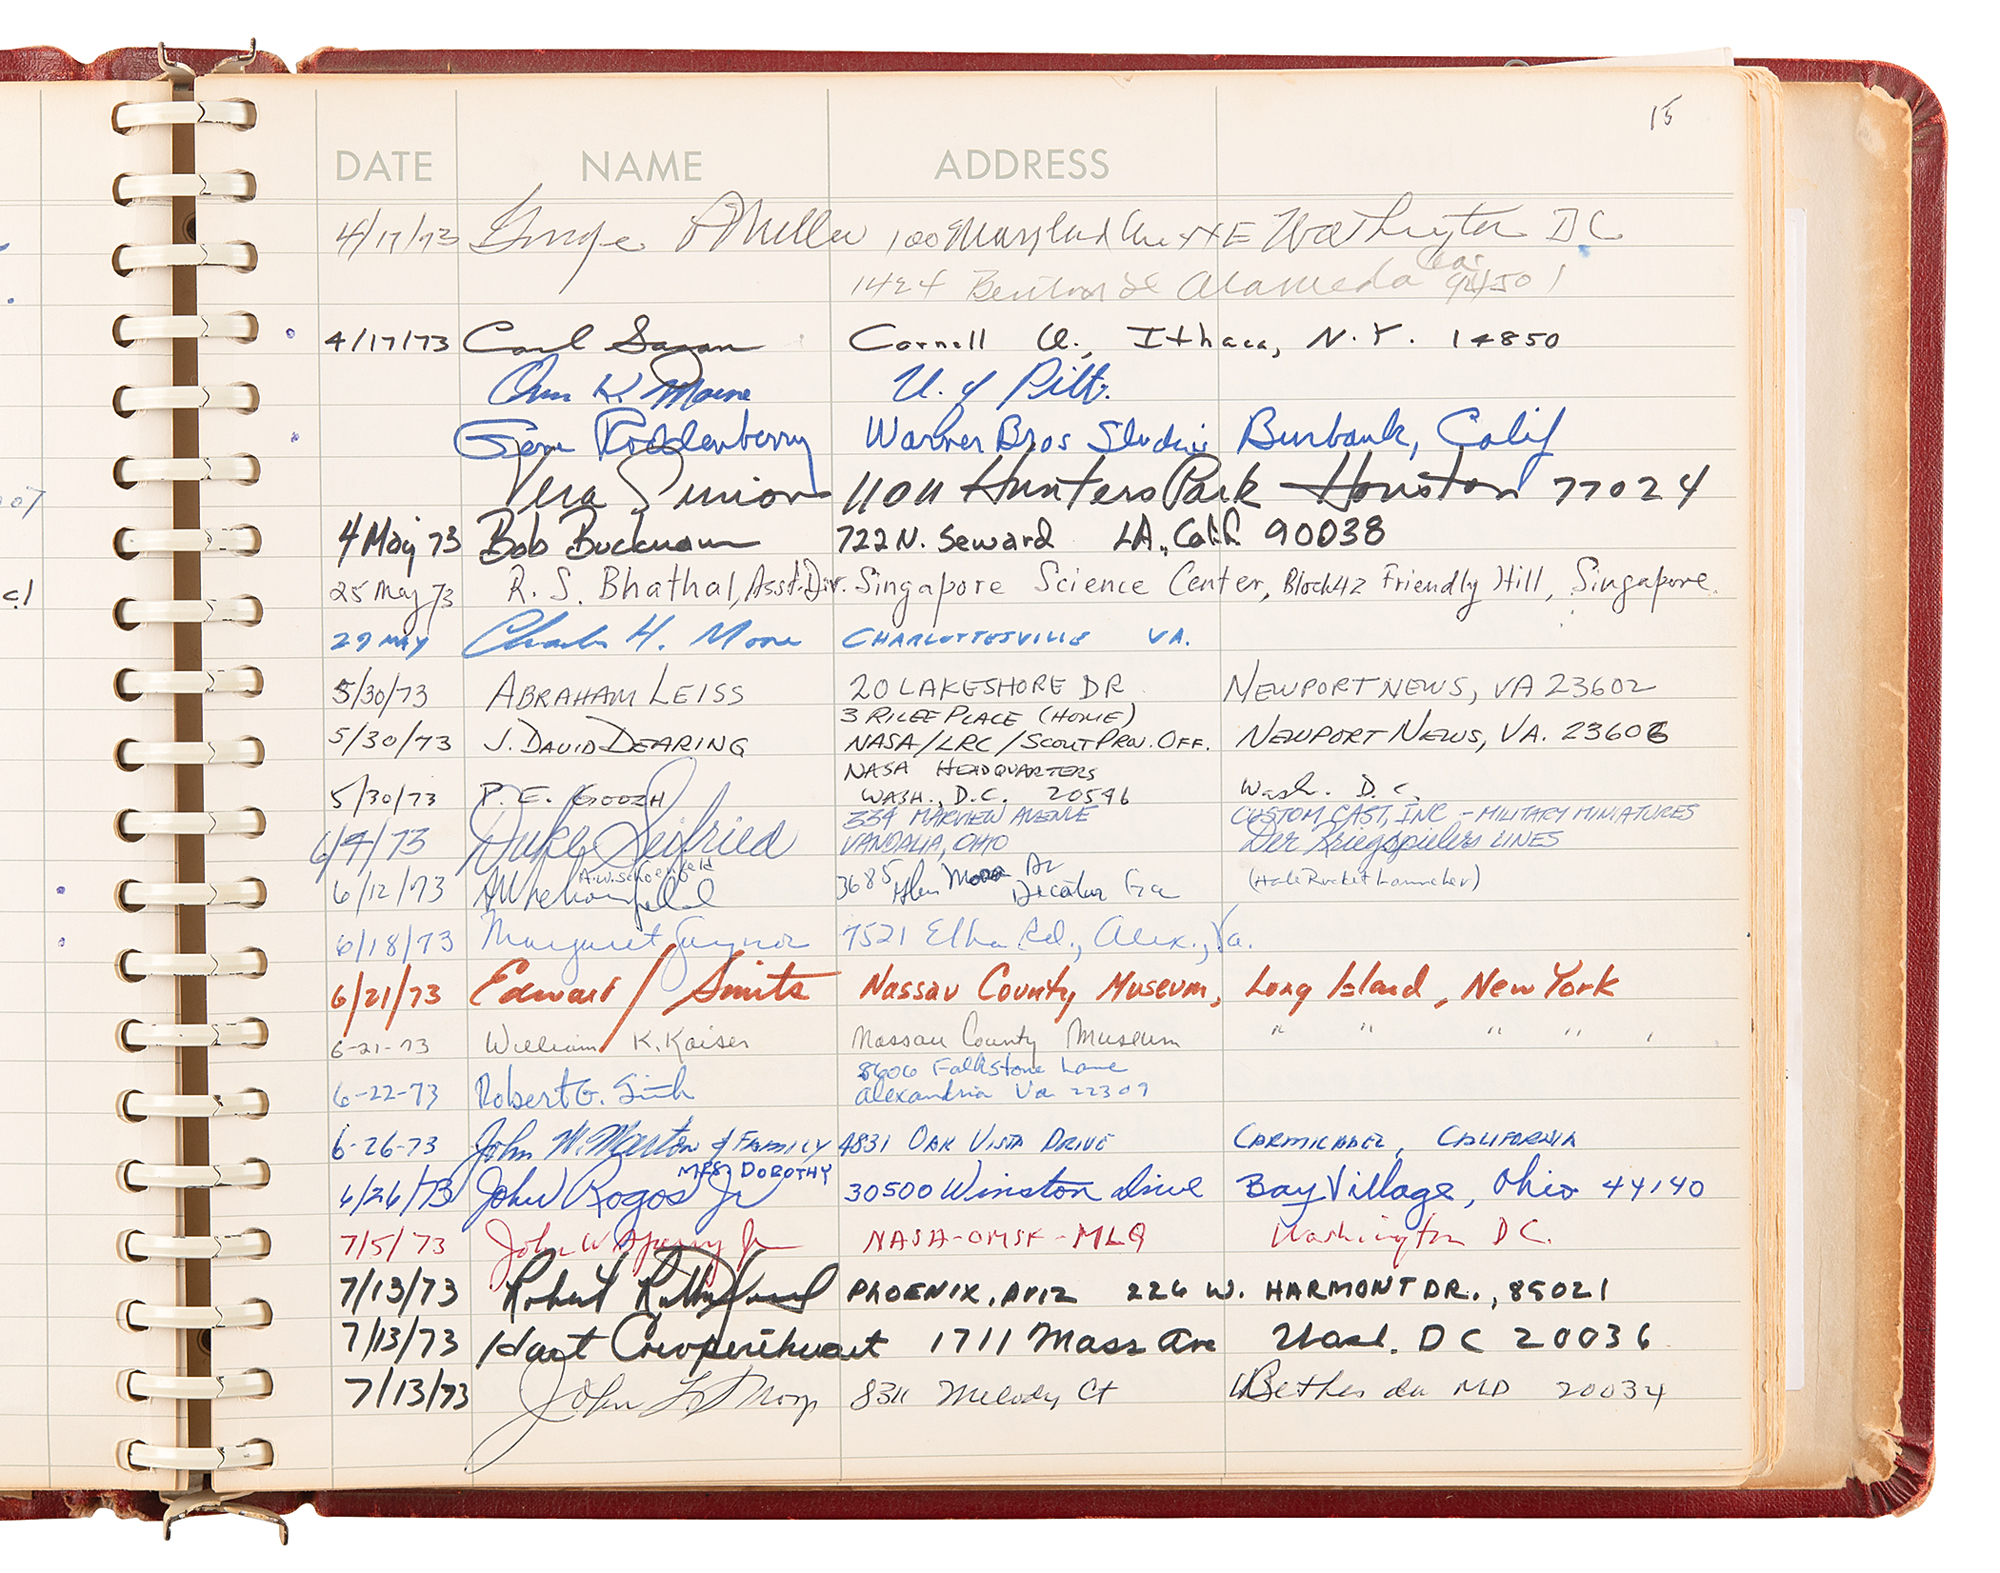 15
DATE NAME ADDRESS
4/17/73 George P Miller 100 Maryland Ave NE Washington DC
1424 Benton St Alameda Cal. 94501
4/17/73 Carl Sagan Cornell U., Ithaca, N.Y. 14850
Ann K. Moore U. of Pitt.
Gene Roddenberry Warner Bros Studios Burbank, Calif
Vera Simons 11011 Hunters Park Houston 77024
4 May 73 Bob Buckman 722 N. Seward LA, Calif. 90038
25 May 73 R. S. Bhathal, Asst. Dir. Singapore Science Center, Block 42 Friendly Hill, Singapore.
29 MAY Charles H. Moore CHARLOTTESVILLE VA.
5/30/73 ABRAHAM LEISS 20 LAKESHORE DR NEWPORT NEWS, VA 23602
3 RILEE PLACE (HOME)
5/30/73 J. DAVID DEARING NASA/LRC/SCOUT PROJ. OFF. NEWPORT NEWS, VA. 23606
NASA HEADQUARTERS
5/30/73 P. E. GOOZH WASH., D.C. 20546 Wash. D.C.
334 MARVIEW AVENUE CUSTOM CAST, INC - MILITARY MINIATURES
6/9/73 Duke Seifried VANDALIA, OHIO Der Kriegspielers LINES
A.W. Schoenfeld
6/12/73 AW Schoenfeld 3685 Glen Dr Decatur Ga (Hale Rocket Launcher)
6/18/73 Margaret Gaynor 7521 Elba Rd., Alex., Va.
6/21/73 Edward J Smits Nassau County Museum, Long Island, New York
6-21-73 William K. Kaiser Nassau County Museum " " " " ,
8606 Falkstone Lane
6-22-73 Robert G. Smith Alexandria Va 22309
6-26-73 John W. Marton & FAMILY 4831 OAK VISTA DRIVE CARMICHAEL, CALIFORNIA
MRS DOROTHY
6/26/73 John Rogos Jr 30500 Winston Drive Bay Village, Ohio 44140
7/5/73 John W Sperry Jr NASA-OMSF-MLQ Washington DC.
7/13/73 Robert PHOENIX, ARIZ 226 W. HARMONT DR., 85021
7/13/73 Hart Cowperthwait 1711 Mass Ave Wash. DC 20036
7/13/73 John 8311 Melody Ct Bethesda MD 20034